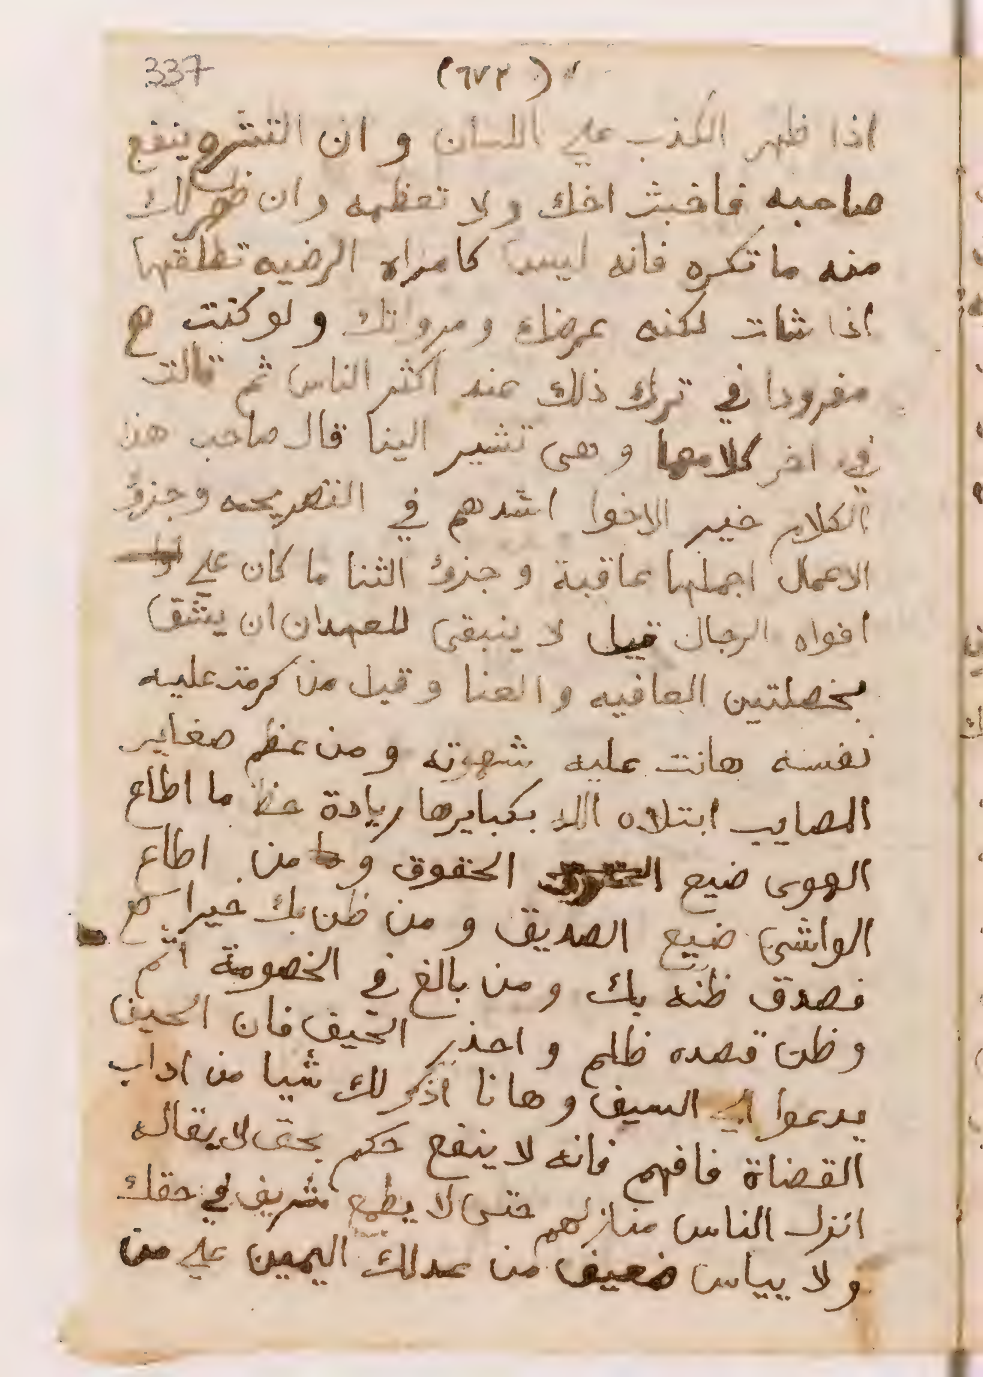 337
(٦٧٣)
اذا ظهر الكذب علي اللسان و ان التشره ينفع
صاحبه فاخبث اخك ولا تعظمه وان ظهر لك
منه ما تكره فانه ليسا كامراه الرضيه تطلقها
اذا شات لكنه عرضك ومرواتك ولو كنت
مفرودا في ترك ذلك عند اكثر الناس ثم قالت
في اخر كلامها وهى تشير الينا قال صاحب هذا
الكلام خير الاخوا اشدهم في النصيحه و
الاعمال اجملها عاقبة و الثنا ما كان علي
افواه الرجال قيل لا ينبقى للعبدان ان يثق
بخصلتين العافيه والعنا وقيل من كرمت عليه
نفسه هانت عليه شهوته ومن عظم صغاير
المصايب ابتلاه الله بكبايرها ريادة عظ ما اطاع
الهوى ضيع الحقوق و من اطاع
الواشى ضيع الصديق و من ظن بك خيرا
فصدق ظنه بك ومن بالغ في الخصومة اثم
وظن قصده ظلم و احذر الحيف فان الحيف
يدعوا الي السيف وهانا اذكر لك شيا من اداب
القضاة فافهم فانه لا ينفع حكم بحق لا يقال
انزل الناس منازلهم حتى لا يطمع شريف في حقك
ولا يياس ضعيف من عدلك اليمين علي من